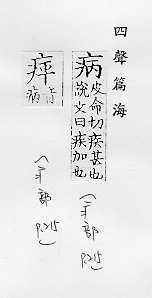 四聲篇海
病
皮命切疾甚也
說文曰疾加也
(疒部
P.215)
瘁
上同
(疒部
P.215)